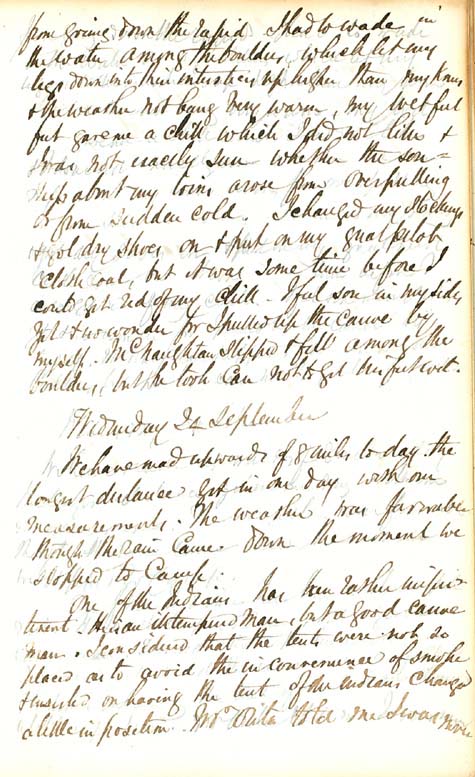 from going down the rapid I had to wade in
the water among the boulders, which let my
legs down into their interstices up higher than my knees
& the weather not being very warm, my wet feet
feet gave me a chill which I did not like &
I was not exactly sure whether the sore=
ness about my loins arose from overpulling
or from sudden cold. I changed my Stockings
& got dry shoes on & put on my great pilot
cloth coat, but it was some time before I
could get rid of my chill. I feel sore in my sides
yet & no wonder for I pulled up the canoe by
myself. McNaughtan slipped & fell among the
boulders, but he took care not to get his feet wet.
Wednesday 24 September
We have made upwards of 8 miles to day. the
longest distance yet in one day with our
measurements. The weather was favorable
though the rain came down the moment we
stopped to Camp.
One of the Indians has been rather imperti-
nent. He is an ill tempered man, but a good canoe
man. I considered that the tents were not so
placed as to avoid the inconvenience of smoke
& insisted on having the tent of the Indians changed
a little in position. told me I was never